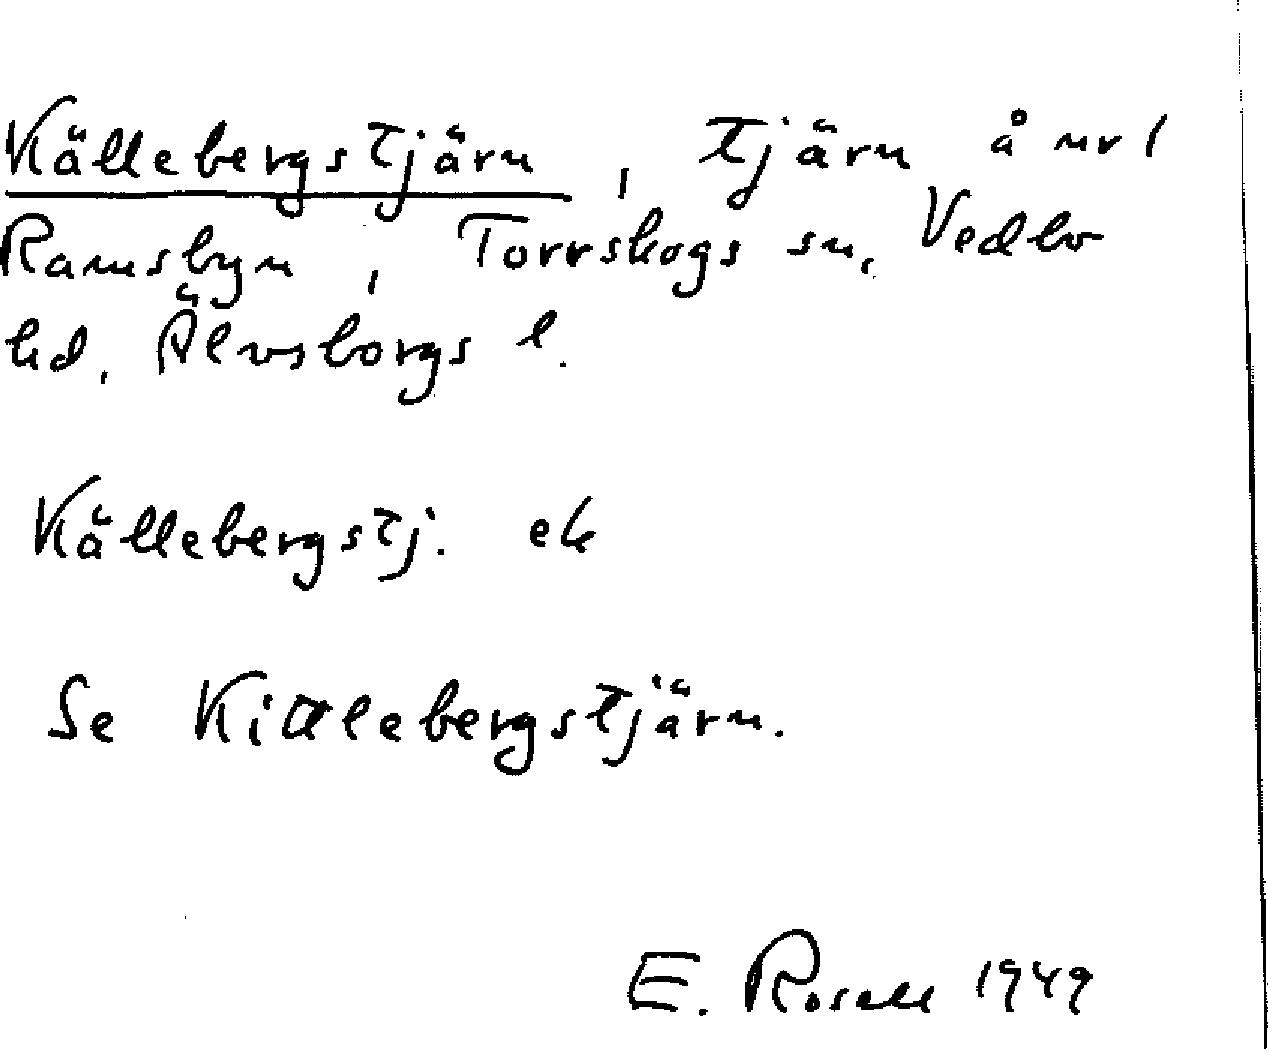 Källebergstjärn, tjärn å nr 1
Ramsbyn, Torrskogs sn, Vedbo
hd. Älvsborgs l.
Källebergstj. ek
Se Kittlebergstjärn.
E. Rosell 1949